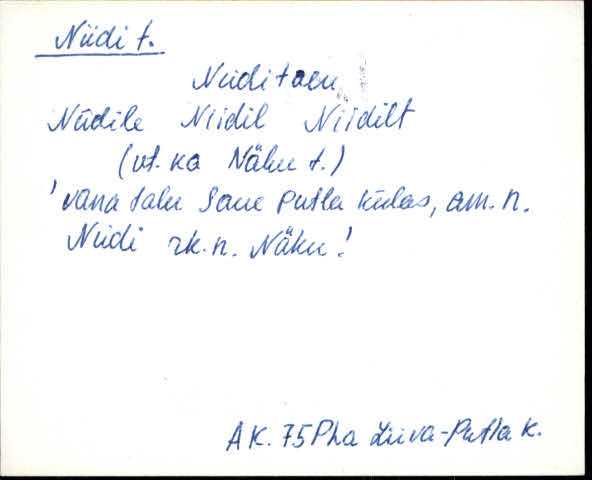 Niidi t.
Niiditalu
Niidile Niidil Niidilt
(vt. ka Näku t.)
'vana talu Saue Putla külas, am. n.
Niidi rk. n. Näku!
AK. 75 Pha Liiva-Putla k.